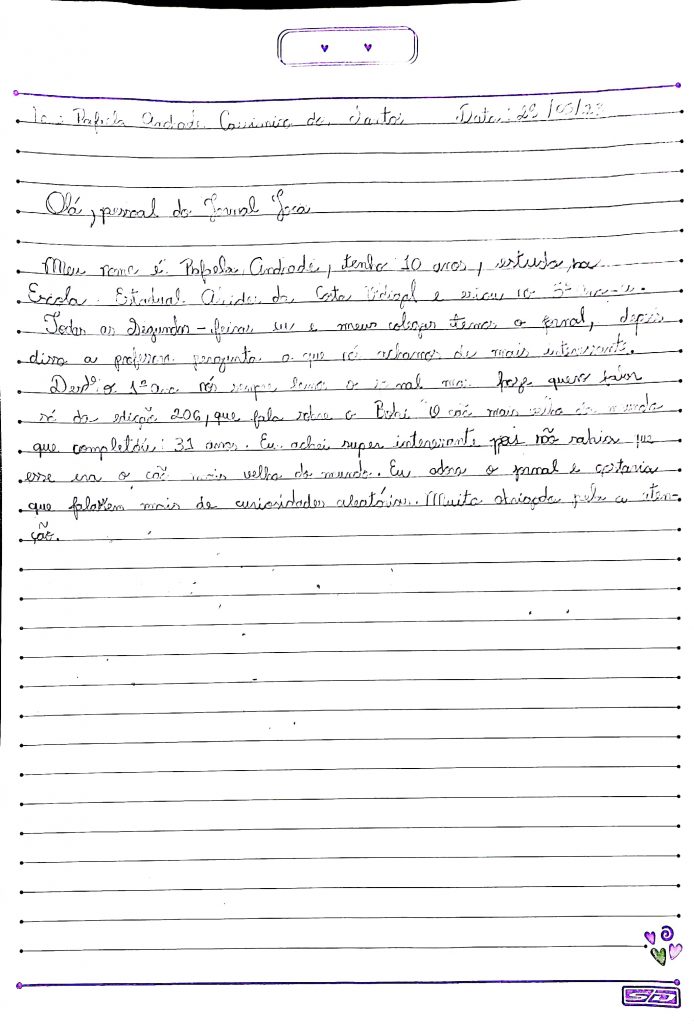 Rafaela Andrade Casimiro dos Santos Data: 29/05/23
Olá, pessoal do Jornal Joca
Meu nome é Rafaela Andrade, tenho 10 anos, estudo na
Escola Estadual Alcides da Costa Vidigal e estou no 5º
Todas as Segundas-feiras eu e meus colegas temos o jornal, depois
disso a professora pergunta o que nós achamos de mais interessante.
Desde o 1º ano nós sempre lemos o jornal mas hoje quero falar
só da edição 206, que fala sobre o Bobi "O cão mais velho do mundo
que completou: 31 anos. Eu achei super interessante pois não sabia que
esse era o cão mais velho do mundo. Eu adoro o jornal e gostaria
que falassem mais de curiosidades aleatórias. Muito obrigada pela a aten-
ção.